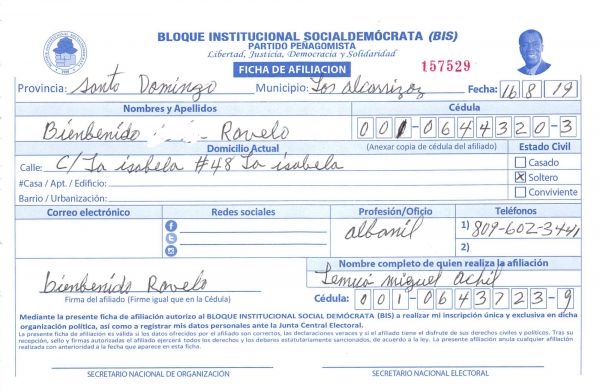 BLOQUE INSTITUCIONAL SOCIALDEMÓCRATA (BIS)
PARTIDO PEÑAGOMISTA
Libertad, Justicia, Democracia y Solidaridad
FICHA DE AFILIACION
157529
Provincia: Santo Domingo Municipio: Los alcarrizoz Fecha: 16 8 19
Nombres y Apellidos Cédula
Bienbenido Ravelo 001-0644320-3
Domicilio Actual (Anexar copia de cédula del afiliado) Estado Civil
Calle: C/ La isabela #48 La isabela
Casado
#Casa / Apt. / Edificio:
Soltero
Barrio / Urbanización:
Conviviente
Correo electrónico Redes sociales Profesión/Oficio Teléfonos
albanil 1) 809-602-3441
2)
Nombre completo de quien realiza la afiliación
bienbenido Ravelo miguel
Firma del afiliado (Firme igual que en la Cédula) Cédula: 001-0643723-9
Mediante la presente ficha de afiliación autorizo al BLOQUE INSTITUCIONAL SOCIAL DEMÓCRATA (BIS) a realizar mi inscripción única y exclusiva en dicha
organización política, así como a registrar mis datos personales ante la Junta Central Electoral.
La presente ficha de afiliación es válida si los datos ofrecidos por el afiliado son correctos, las declaraciones veraces y si el afiliado tiene el disfrute de sus derechos civiles y políticos. Tras su
recepción, sello y firmas autorizadas el afiliado ejercerá todos los derechos y los deberes estatutariamente sancionados, de acuerdo a la ley. La presente afiliación anula cualquier afiliación
realizada con anterioridad a la fecha que aparece en esta ficha.
SECRETARIO NACIONAL DE ORGANIZACIÓN SECRETARIO NACIONAL ELECTORAL